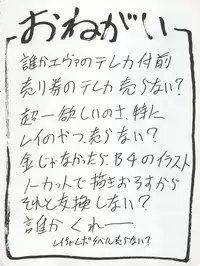 おねがい
誰かエヴァのテレカ付前
売り券のテレカ売らない?
超一欲しいのさ、特に
レイのやつ、売らない?
金じゃなかったら、B4のイラスト
ノーカットで描きおろすから
それと交換しない?
誰か くれー
売らない?